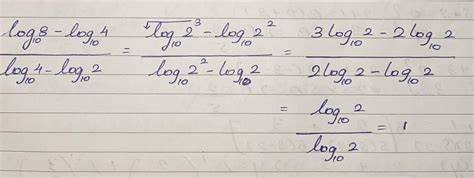 log₁₀8 - log₁₀4 / log₁₀4 - log₁₀2 = log₁₀2³ - log₁₀2² / log₁₀2² - log₁₀2 = 3log₁₀2 - 2log₁₀2 / 2log₁₀2 - log₁₀2
= log₁₀2 / log₁₀2 = 1